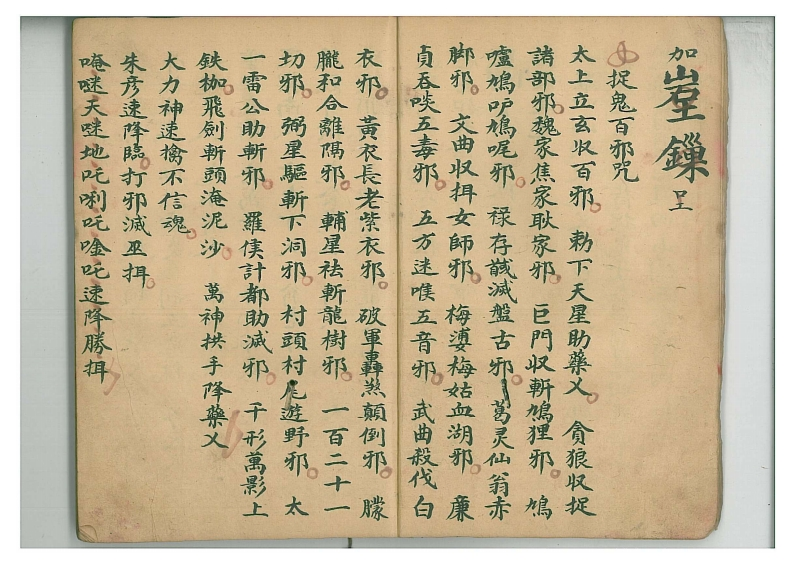 加 岩 鏁 呈
捉鬼百邪咒
太上立玄収百邪 勅下天星助藥乂 貪狼収捉
諸部邪魏家焦家耿家邪 巨門収斬鳩狸邪 鳩
嚧鳩吵鳩呢邪 禄存馘滅盤古邪 葛灵仙翁赤
脚邪 文曲収揖女師邪 梅婆梅姑血湖邪 廉
貞吞啖五毒邪 五方迷喉五音邪 武曲殺伐白
衣邪 黃衣長老紫衣邪 破軍轟煞顛倒邪 朦
朧和合離隅邪 輔星袪斬龍樹邪 一百二十一
切邪 弼星驅斬下洞邪 村頭村尾遊野邪 太
一雷公助斬邪 羅侯計都助滅邪 千形萬影上
鉄枷飛劍斬頭淹泥沙 萬神拱手降藥乂
大力神速擒不信魂
朱彦速降臨打邪滅巫揖
唵㗎天㗎地吒唎吒唫吒速降勝揖